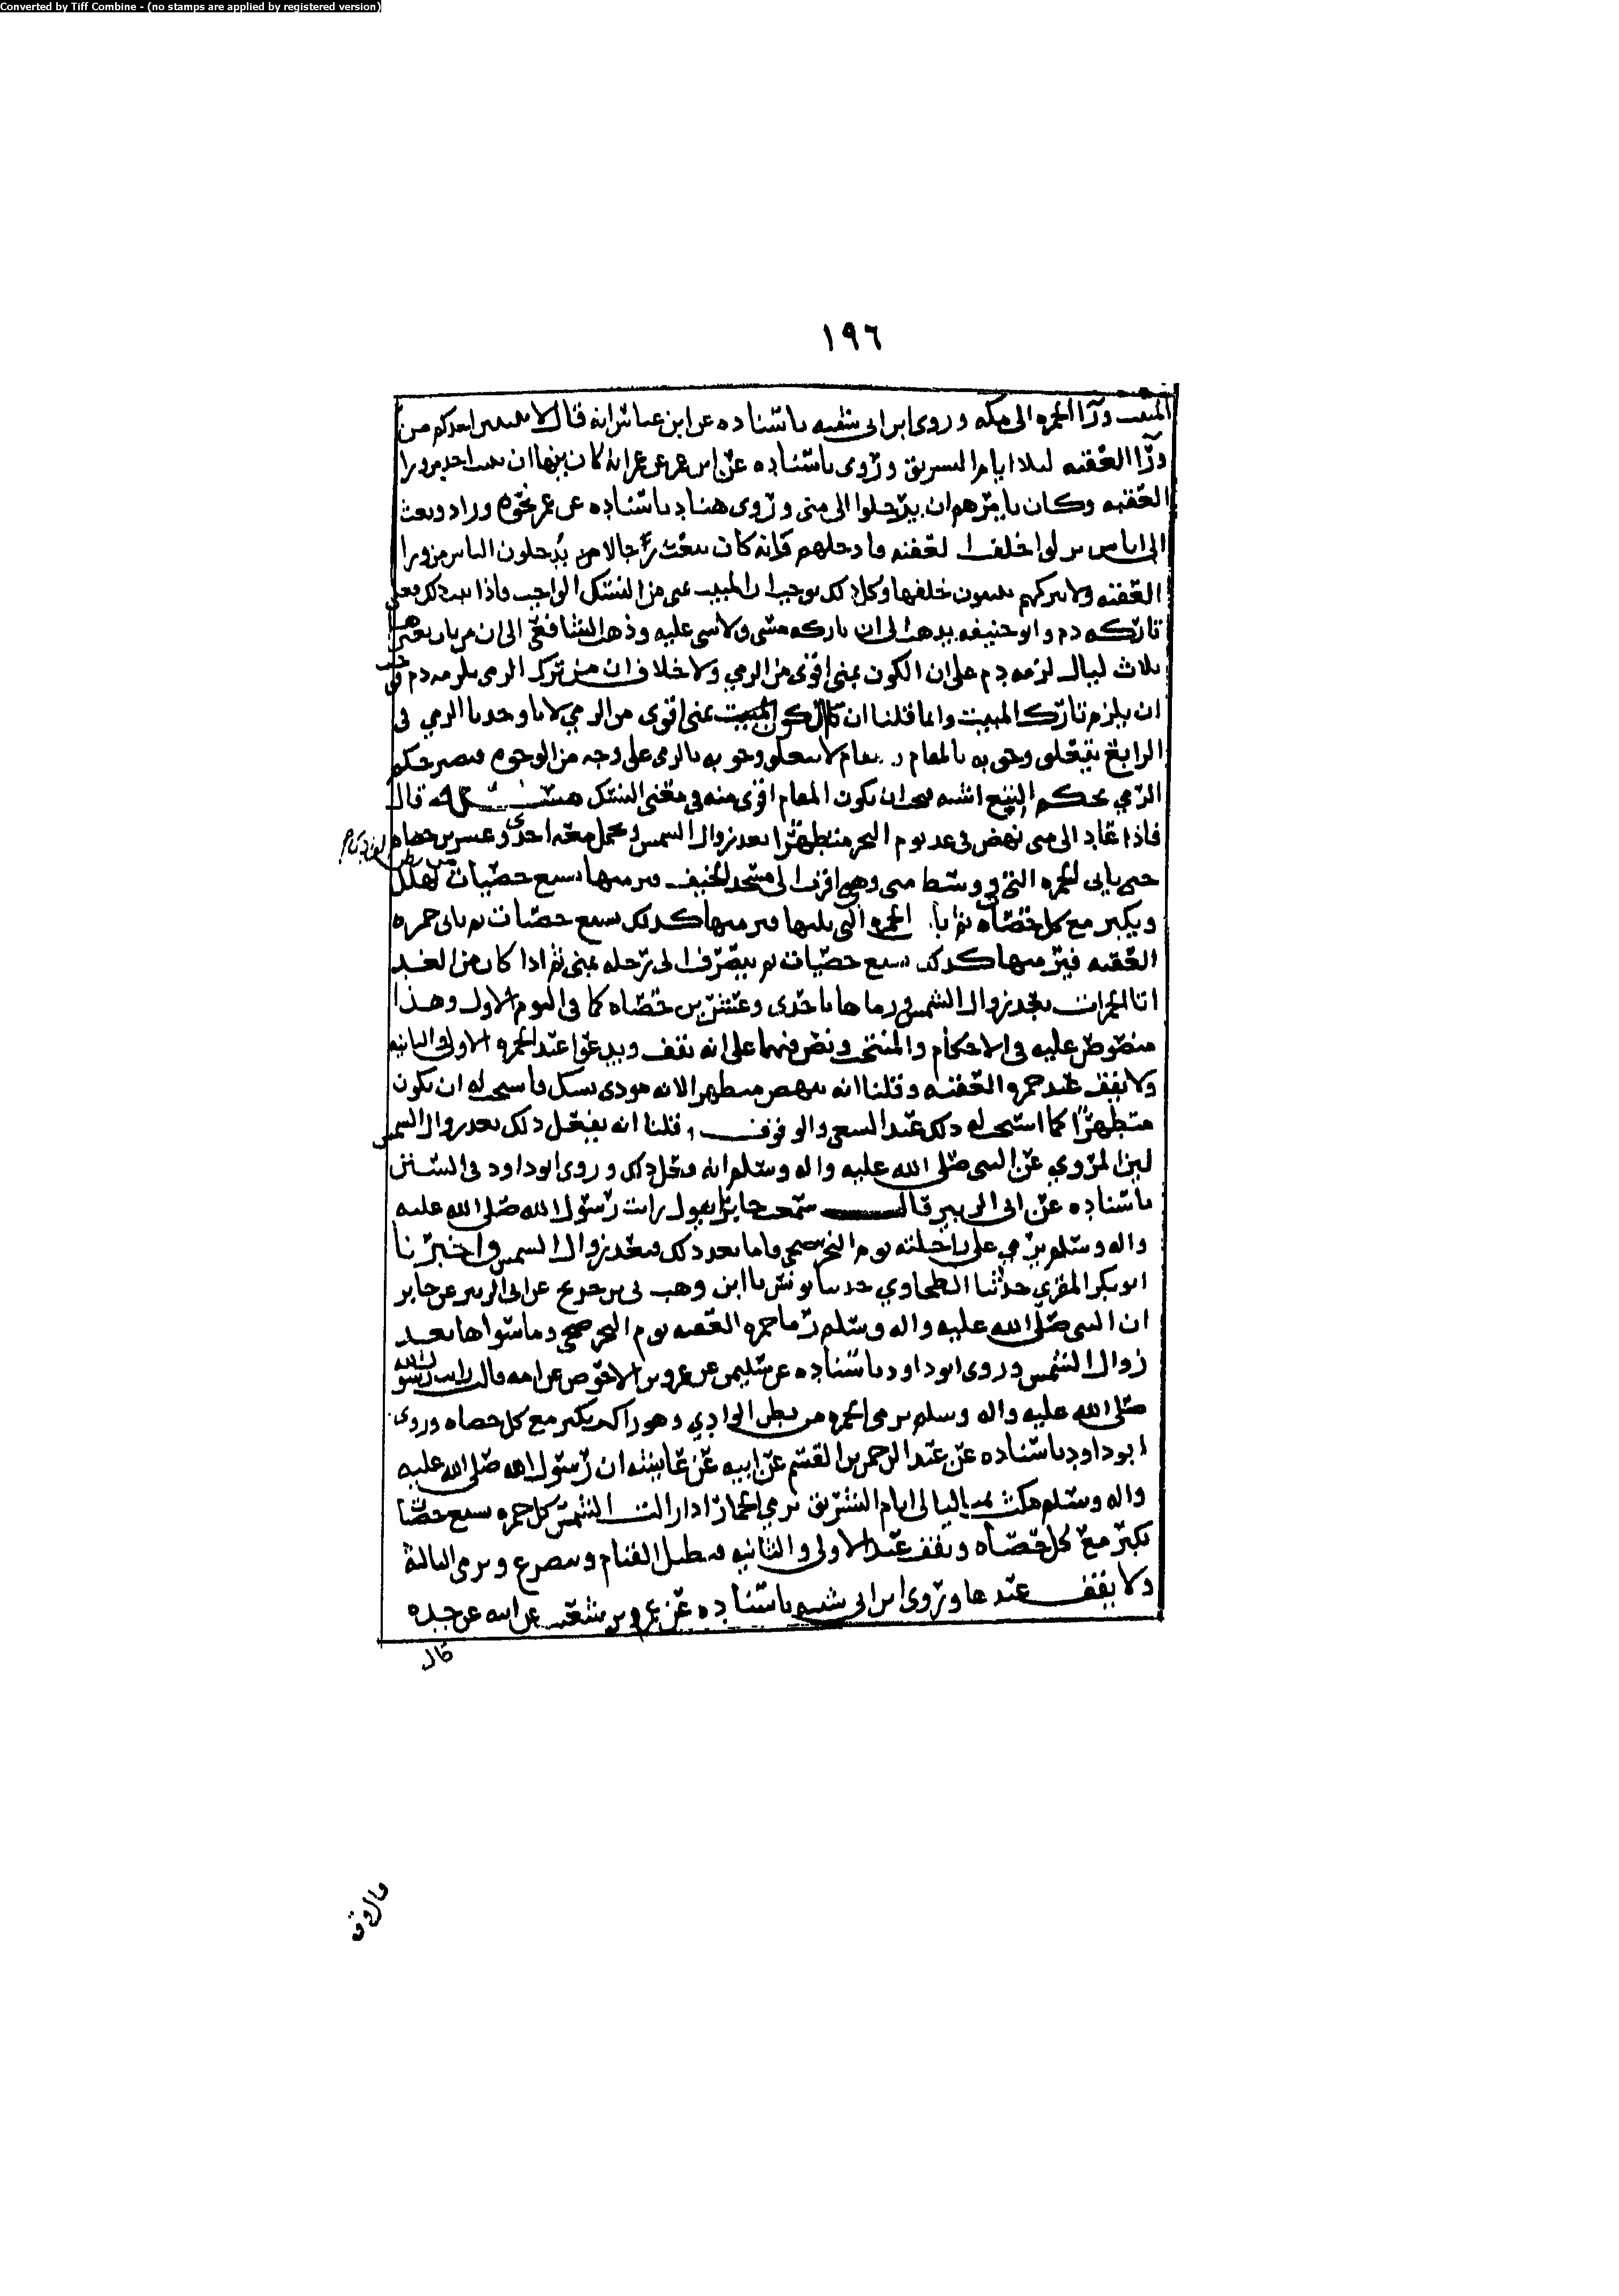 Converted by Tiff Combine - (no stamps are applied by registered version)
١٩٦
المبيت ورآ الجمره الى مكه وروى ابن ابى شيبه باسناده عن ابن عباس انه قال لا يبيتن احدكم من
ورآ العقبه ليلا ايام التشريق وروى باسناده عن ابن عمر عن عمر انه كان ينها ان يبيت احد من ورا
العقبه وكان يامرهم ان يدخلوا الى منى وروى هناد باسناده عن عمر نحوه وزاد وبعث
الى اناس نزلوا خلف العقبه فادخلهم فانه كان يبعث رجالا من يدخلون الناس من ورا
العقبه ولا يتركهم يبيتون خلفها وكل ذلك يوجب ان المبيت بمنى من النسك الواجب فاذا ثبت ذلك فعلى
تاركه دم وابو حنيفه يذهب الى ان تاركه مسى ولا شى عليه وذهب الشافعي الى ان من بات بغيرها
ثلاث ليال لزمه دم على ان الكون بمنى اقوى من الرمي ولا خلاف ان من ترك الرمى يلزمه دم فيجب
ان يلزم تارك المبيت وانما قلنا ان الكون بمنى اقوى من الرمي لانا وجدنا الرمي فى
الرابع يتعلق وجوبه بالمقام والمقام لا يتعلق وجوبه بالرمى على وجه من الوجوه فيصير حكم
الرمي بحكم التبع اشبه فيجب ان يكون المقام اقوى منه في معنى النسك مسئله قال
فاذا عاد الى منى نهض فى غد يوم النحر متطهرا بعد زوال الشمس وتحمل معه احدى وعشرين حصاه
حتى ياتى الجمره التى فى وسط منى وهى اقرب الى مسجد الخيف فيرميها بسبع حصيات يهلل
ويكبر مع كل حصاه ثم ياتى الجمره التى تليها فيرميها كذلك بسبع حصيات ثم ياتى جمره
العقبه فيرميها كذلك بسبع حصيات ثم ينصرف الى رحله بمنى ثم اذا كان من الغد
اتا الجمرات بعد زوال الشمس ورماها باحدى وعشرين حصاه كما فى اليوم الاول وهذا
منصوص عليه فى الاحكام والمنتخب ونص فيهما على انه يقف ويدعوا عند الجمره الاولى والثانيه
ولا يقف عند جمره العقبه وقلنا انه ينهض متطهرا لانه مودى نسك فاستحب له ان يكون
متطهرا كما استحب له ذلك عند السعى والوقوف وقلنا انه يفعل ذلك بعد زوال الشمس
لان المروي عن النبى صلى الله عليه واله وسلم انه فعل ذلك وروى ابو داود فى السنن
باسناده عن ابى الزبير قال سمعت جابرا يقول رايت رسول الله صلى الله عليه
واله وسلم يرمي على راحلته يوم النحر ضحى فاما بعد ذلك فبعد زوال الشمس واخبرنا
ابو بكر المقري حدثنا الطحاوي حدثنا يونس نا ابن وهب نى بن جريج عن ابى الزبير عن جابر
ان النبى صلى الله عليه واله وسلم رما جمره العقبه يوم النحر ضحى وما سواها بعد
زوال الشمس وروى ابو داود باسناده عن سليمن عن عمرو بن الاحوص عن امه قالت رايت رسول الله
صلى الله عليه واله وسلم يرمى الجمره من بطن الوادي وهو راكب يكبر مع كل حصاه وروى
ابو داود باسناده عن عبد الرحمن بن القسم عن ابيه عن عايشه ان رسول الله صلى الله عليه
واله وسلم مكث بمنا ليالى ايام التشريق يرمي الجمار اذا زالت الشمس كل جمره بسبع حصيات
يكبر مع كل حصاه ويقف عند الاولى والثانيه فيطيل القيام ويتضرع ويرمى الثالثه
ولا يقف عندها وروى ابن ابى شيبه باسناده عن عمرو بن شعيب عن ابيه عن جده
قال